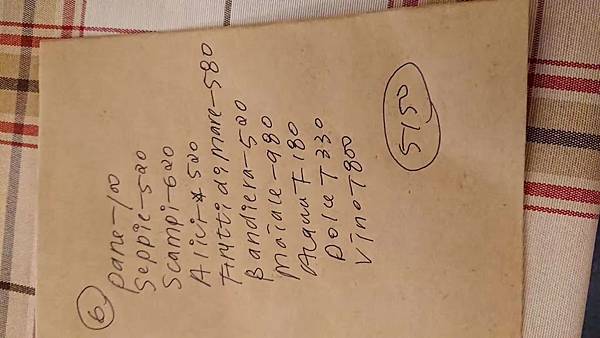 6
Pane-100
Seppie-520
Scampi-620
Alici-520
Frutti di Mare-580
Bandiera-520
Maiale-980
Acqua-180
Dolce-330
Vino-800
5150